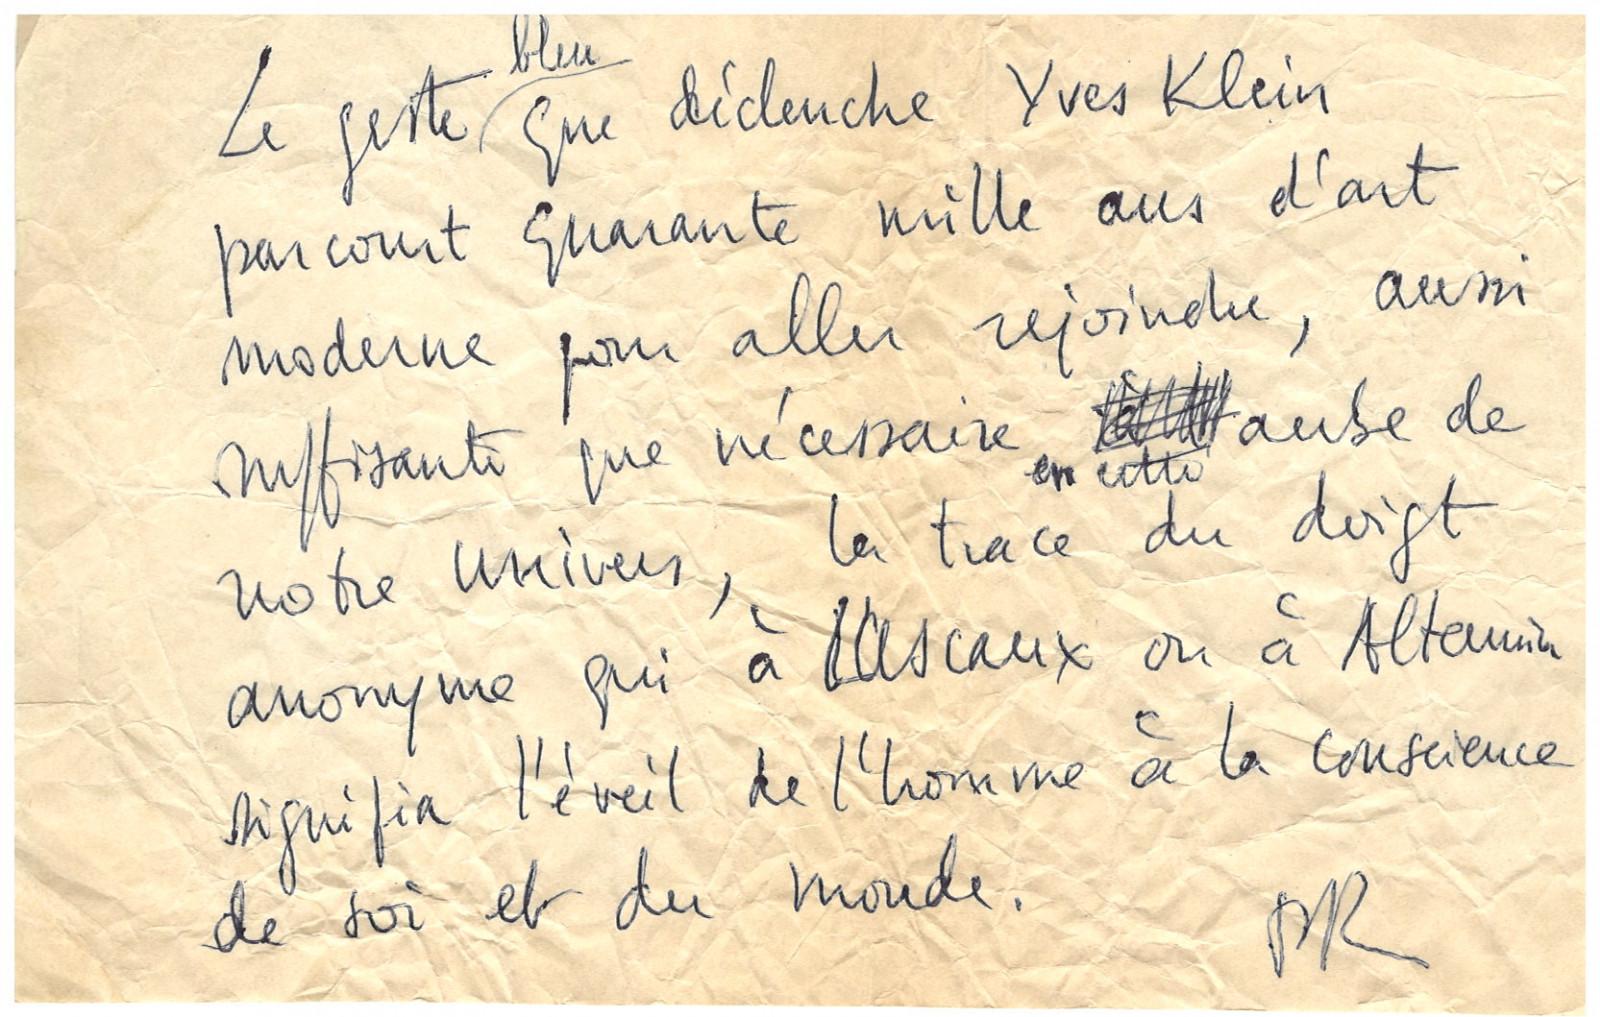 Le geste bleu que déclenche Yves Klein
parcourt quarante mille ans d'art
moderne pour aller rejoindre, aussi
suffisante que nécessaire en cette aube de
notre univers, la trace du doigt
anonyme qui à Lascaux ou à Altamira
signifia l'éveil de l'homme à la conscience
de soi et du monde.
PR